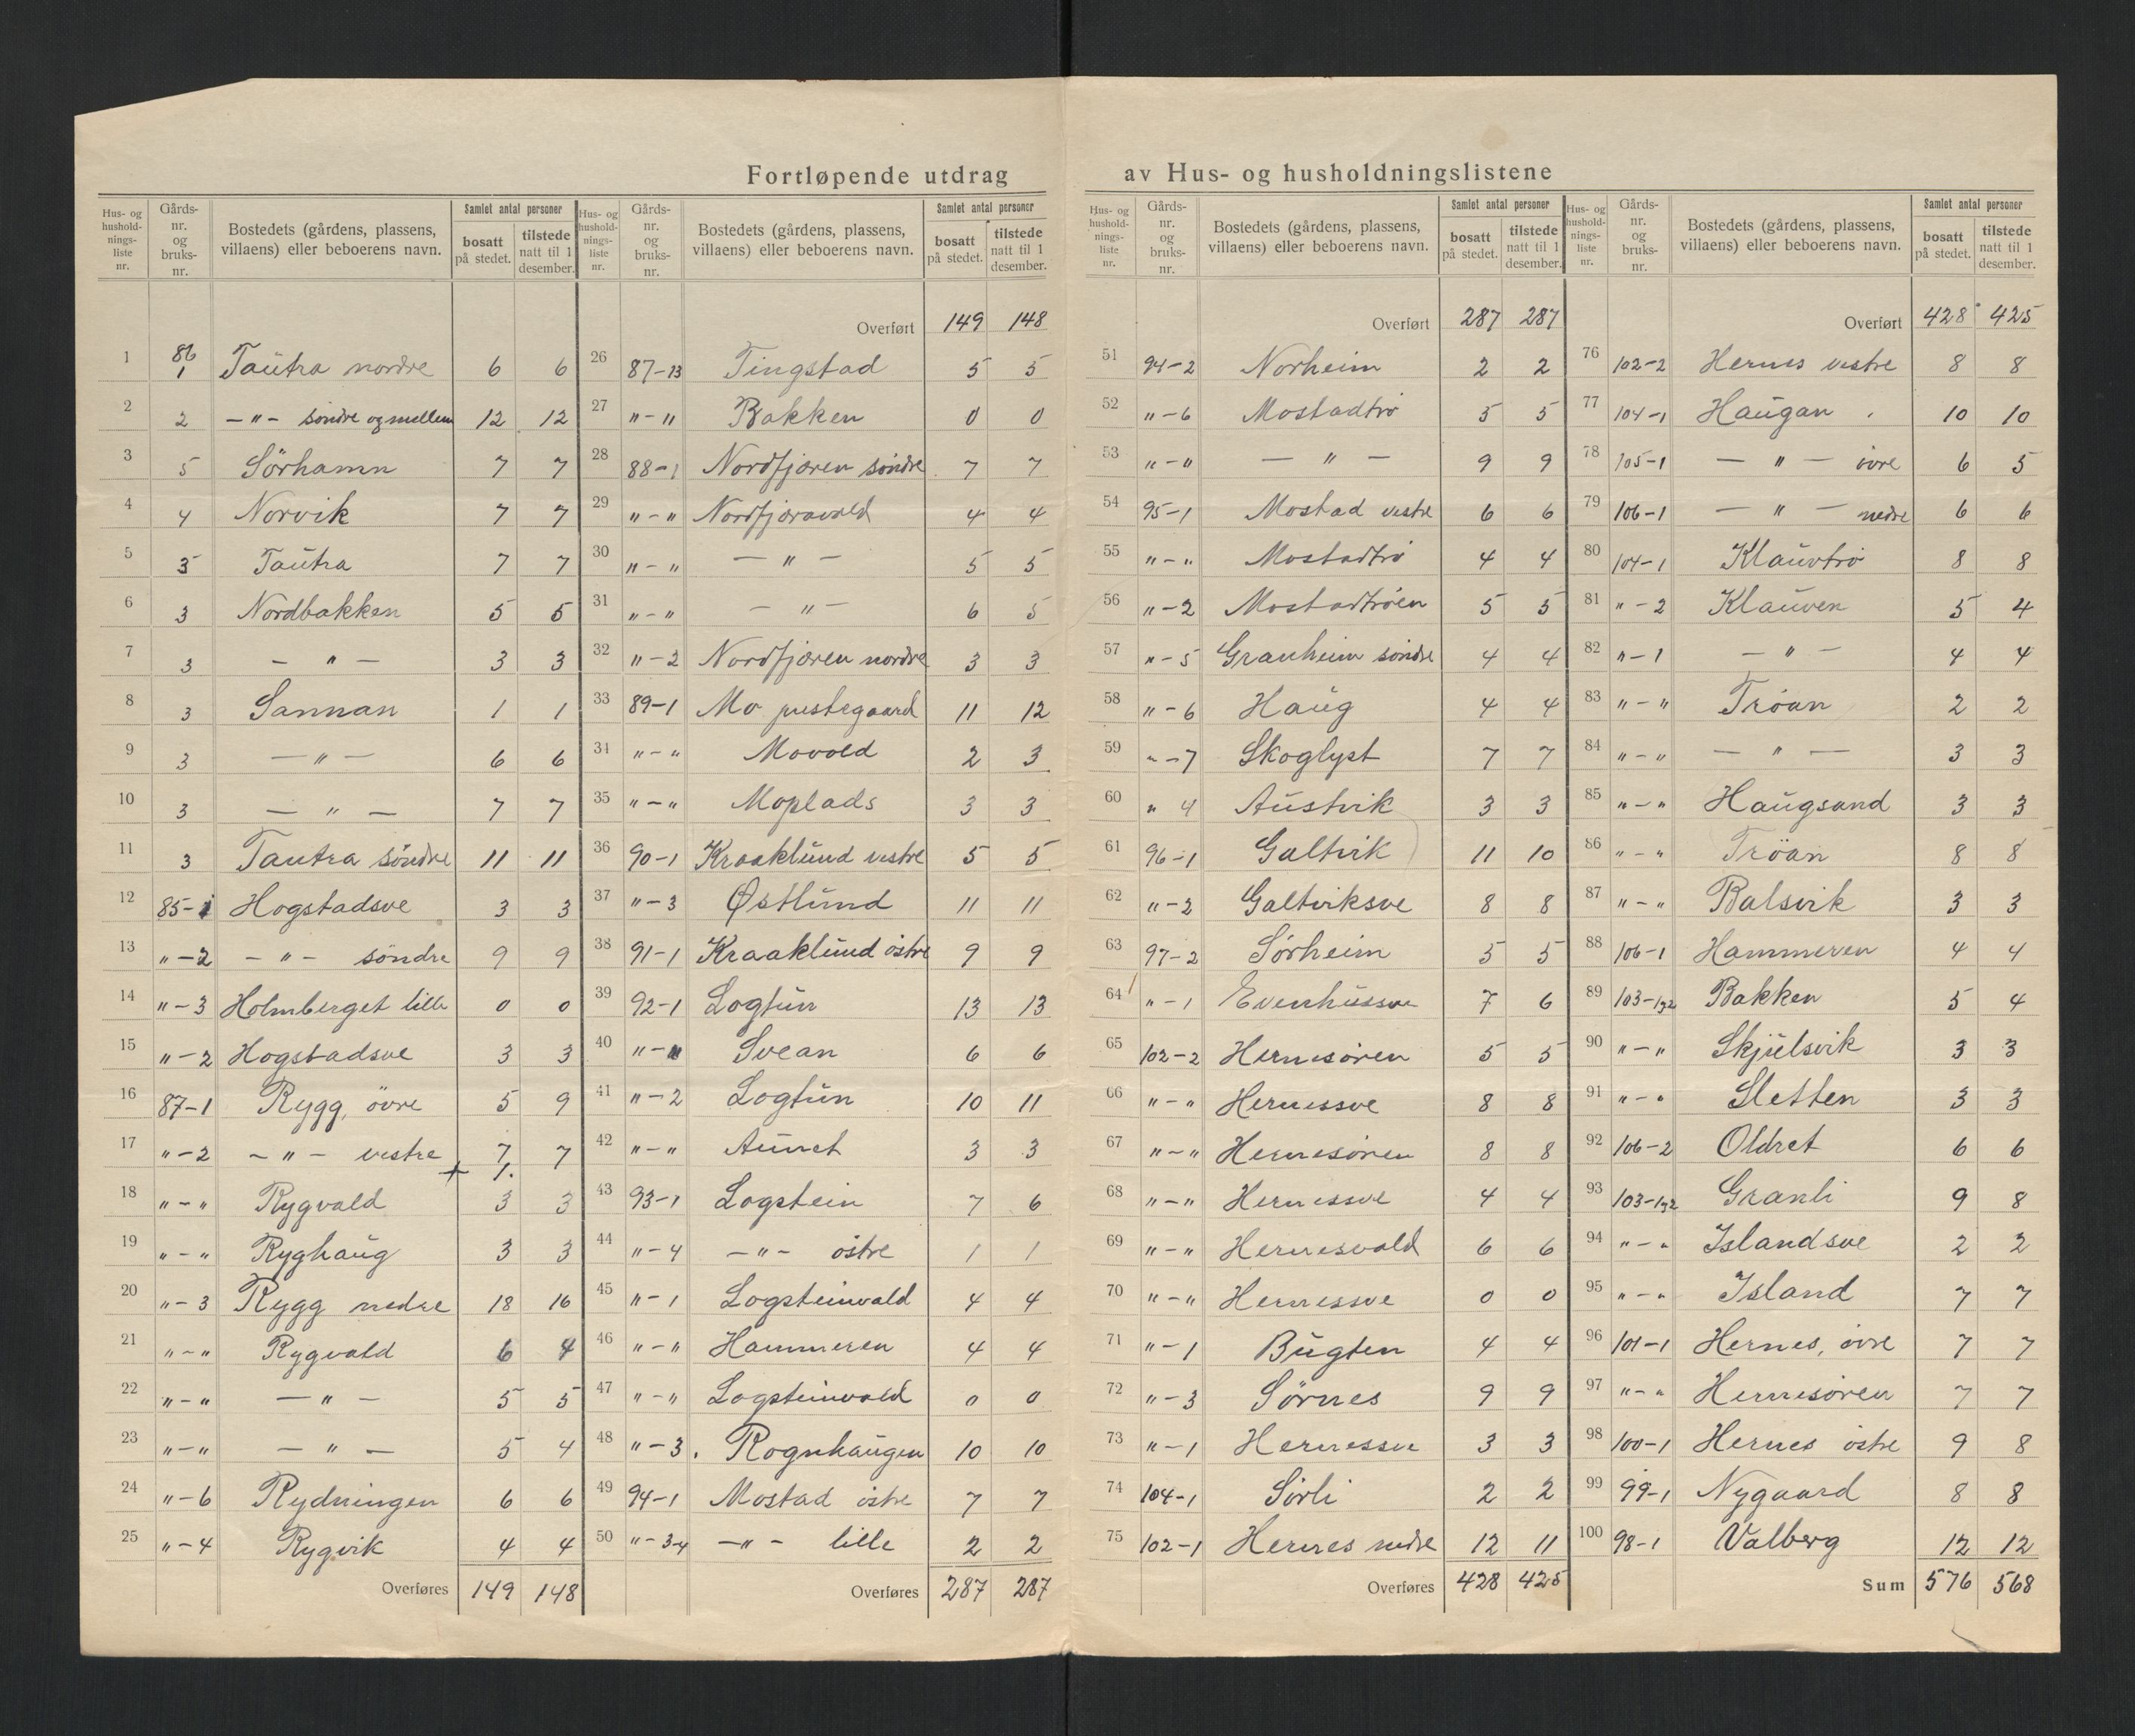 Fortløpende utdrag av Hus- og husholdningslistene
Hus- og husholdnings- liste nr. | Gårds- nr. og bruks- nr. | Bostedets (gårdens, plassens, villaens) eller beboerens navn. | Samlet antal personer | bosatt på stedet. | tilstede natt til 1 desember.
1 86 1 Tautra nordre 6 6
2 2 — " — søndre og mellem 12 12
3 5 Sörhamn 7 7
4 4 Norvik 7 7
5 3 Tautra 7 7
6 3 Nordbakken 5 5
7 3 — " — 3 3
8 3 Sannan 1 1
9 3 — " — 6 6
10 3 — " — 7 7
11 3 Tautra söndre 11 11
12 85-1 Hogstadsve 3 3
13 "-2 — " — söndre 9 9
14 "-3 Holmberget lille 0 0
15 "-2 Hogstadsve 3 3
16 87-1 Rygg, övre 5 9
17 "-2 — " — vestre 7 7
+ 1.
18 "-" Rygvald 3 3
19 "-" Ryghaug 3 3
20 "-3 Rygg nedre 18 16
21 "-" Rygvald 6 4
22 "-" — " — 5 5
23 "-" — " — 5 4
24 "-6 Rydningen 6 6
25 "-4 Rygvik 4 4
Overføres 149 148
Hus- og husholdnings- liste nr. | Gårds- nr. og bruks- nr. | Bostedets (gårdens, plassens, villaens) eller beboerens navn. | Samlet antal personer | bosatt på stedet. | tilstede natt til 1 desember.
Overført 149 148
26 87-13 Tingstad 5 5
27 "-" Bakken 0 0
28 88-1 Nordfjæren søndre 7 7
29 "-" Nordfjæravald 4 4
30 "-" — " — 5 5
31 "-" — " — 6 5
32 "-2 Nordfjæren nordre 3 3
33 89-1 Mo prestegaard 11 12
34 "-" Movold 2 3
35 "-" Moplads 3 3
36 90-1 Kraaklund vestre 5 5
37 "-3 Østlund 11 11
38 91-1 Kraaklund östre 9 9
39 92-1 Logtun 13 13
40 "-" Svean 6 6
41 "-2 Logtun 10 11
42 "-" Aunet 3 3
43 93-1 Logstein 7 6
44 "-4 — " — östre 1 1
45 "-1 Logsteinvald 4 4
46 "-" Hammeren 4 4
47 "-" Logsteinvold 0 0
48 "-3. Rognhaugen 10 10
49 94-1 Mostad östre 7 7
50 "-3-4 — " — lille 2 2
Overføres 287 287
Hus- og husholdnings- liste nr. | Gårds- nr. og bruks- nr. | Bostedets (gårdens, plassens, villaens) eller beboerens navn. | Samlet antal personer | bosatt på stedet. | tilstede natt til 1 desember.
Overført 287 287
51 94-2 Norheim 2 2
52 "-6 Mostadtrö 5 5
53 "-" — " — 9 9
54 95-1 Mostad vestre 6 6
55 "-" Mostadtrö 4 4
56 "-2 Mostadtröen 5 5
57 "-5 Granheim söndre 4 4
58 "-6 Haug 4 4
59 "-7 Skoglyst 7 7
60 " 4 Austvik 3 3
61 96-1 Galtvik 11 10
62 "-2 Galtviksve 8 8
63 97-2 Sörheim 5 5
64 "-1 Evenhussve 7 6
65 102-2 Hernesören 5 5
66 "-" Hernessve 8 8
67 "-" Hernesören 8 8
68 "-" Hernessve 4 4
69 "-" Hernesvald 6 6
70 "-" Hernessve 0 0
71 "-1 Bugten 4 4
72 "-3 Sörnes 9 9
73 "-1 Hernessve 3 3
74 104-1 Sörli 2 2
75 102-1 Hernes nedre 12 11
Overføres 428 425
Hus- og husholdnings- liste nr. | Gårds- nr. og bruks- nr. | Bostedets (gårdens, plassens, villaens) eller beboerens navn. | Samlet antal personer | bosatt på stedet. | tilstede natt til 1 desember.
Overført 428 425
76 102-2 Hernes vestre 8 8
77 104-1 Haugan 10 10
78 105-1 — " — övre 6 5
79 106-1 — " — nedre 6 6
80 104-1 Klauvtrö 8 8
81 "-2 Klauven 5 4
82 "-1 — " — 4 4
83 "-" Tröan 2 2
84 "-" — " — 3 3
85 "-" Haugsand 3 3
86 "-" Tröan 8 8
87 "-" Balsvik 3 3
88 106-1 Hammeren 4 4
89 103-1,2 Bakken 5 4
90 "-" Skjelsvik 3 3
91 "-" Sletten 3 3
92 106-2 Oldret 6 6
93 103-1,2 Granli 9 8
94 "-" Islandsve 2 2
95 "-" Island 7 7
96 101-1 Hernes, övre 7 7
97 "-" Hernesören 7 7
98 100-1 Hernes östre 9 8
99 99-1 Nygaard 8 8
100 98-1 Valberg 12 12
Sum 576 568